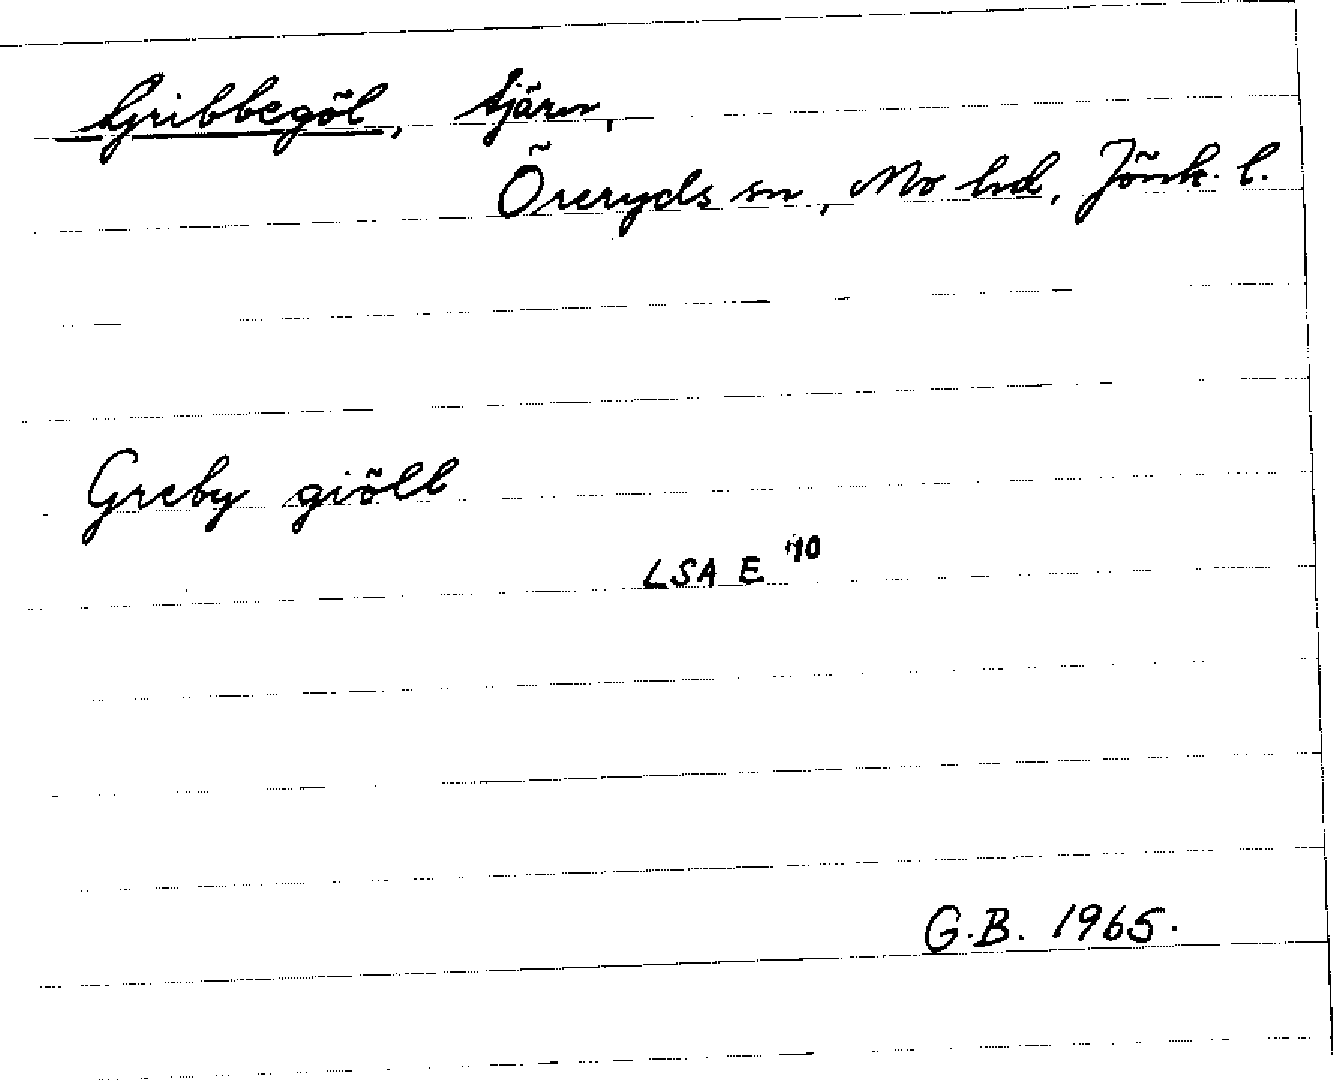 Gribbegöl, tjärn,
Öreryds sn, Mo hd, Jönk. l.
Greby giöll
LSA E 10
G.B. 1965.